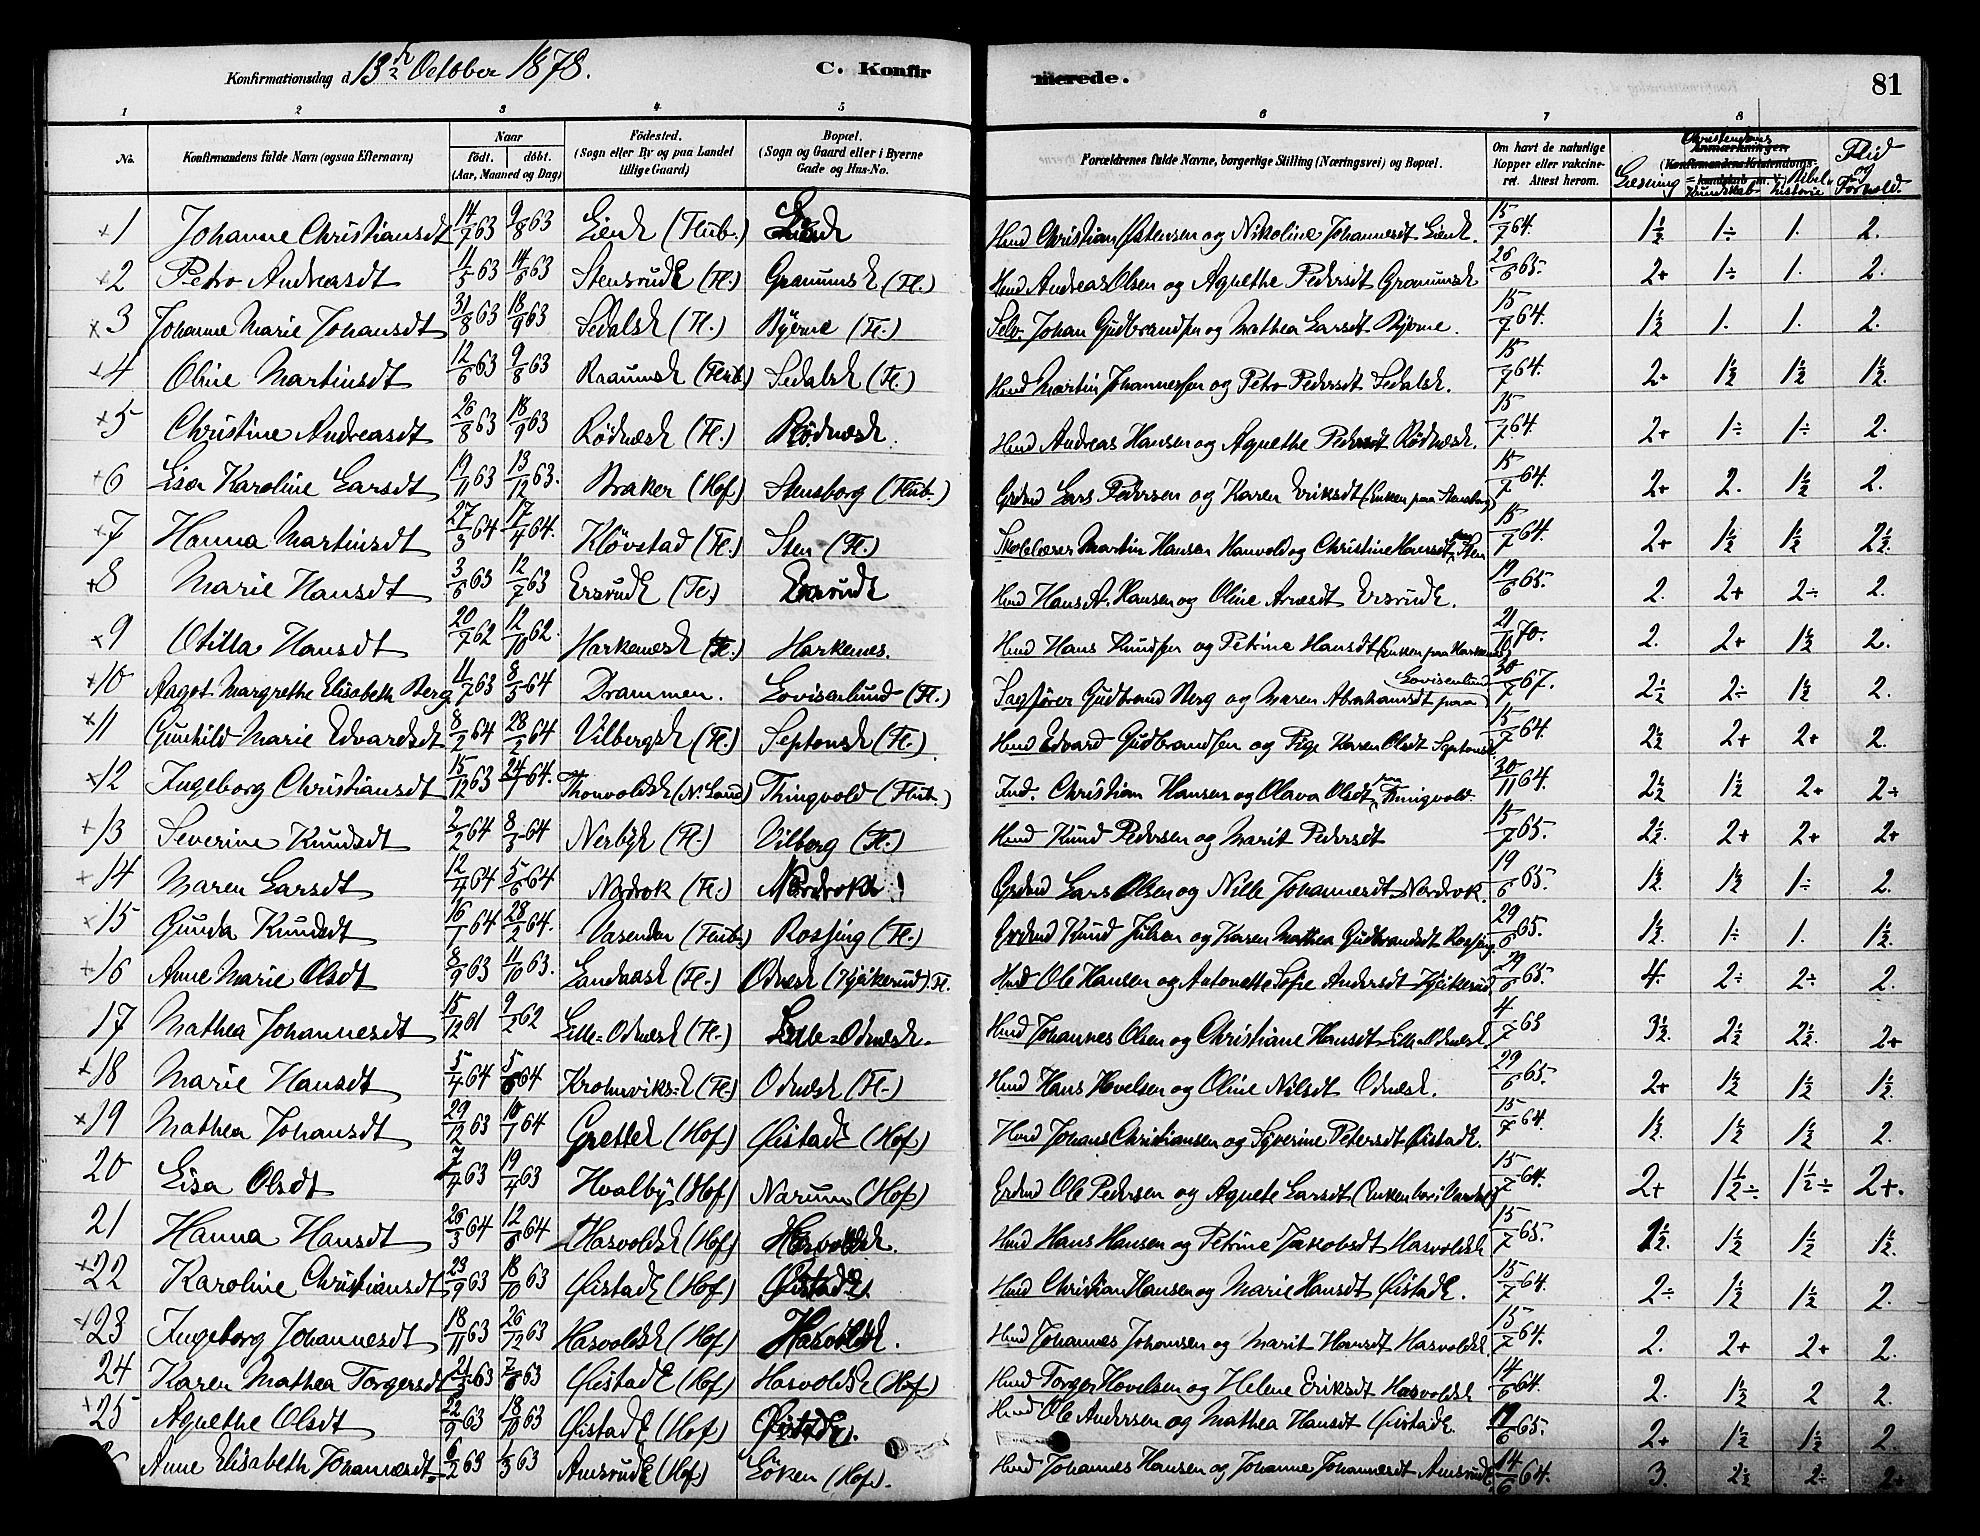 Konfirmationsdag d. 13de October 1878. C. Konfirmerede. 81
1 2 3 4 5 6 7 8
No. Konfirmandens fulde Navn (ogsaa Efternavn) Naar födt. döbt. (Aar, Maaned og Dag) Födested. (Sogn eller By og paa Landet tillige Gaard) Bopæl. (Sogn og Gaard eller i Byerne Gade og Hus-No. Forældrenes fulde Navne, borgerlige Stilling (Næringsvei) og Bopæl. Om havt de naturlige Kopper eller vaccineret. Attest herom. Anmærkningen (Konfirmandens Kristendomskundskab m. V.) Læsning Christendomskundskab Bibelhistorie Flid og Forhold.
1 Johanne Christiansdt 14/7 63 9/8 63 Lien (Flub.) Hmd Christian Østensen og Nikoline Johannesdt Lien 15/7 64. 1½ 1÷ 1. 2.
2 Petra Andreasdt 11/5 63 14/6 63 Stensrud (Fl.) Granum (Fl.) Hmd Andreas Olsen og Agnethe Pedersdt 26/6 65. 2+ 1÷ 1. 2.
3 Johanne Marie Johansdt 31/8 63 18/9 63 Sedals (Fl.) Bjerne (Fl.) Selv. Johan Gudbrandsen og Mathea Larsdt Bjerne. 15/7 64. 1½ 1. 1. 2.
4 Oline Martinsdt 12/6 63 9/8 63 (Flub) Sedals (Fl.) Hmd Martin Johannessen og Petra Pedersdt Sedals 15/7 64. 2+ 1½ 1½ 1½.
5 Christine Andreasdt 26/8 63 18/9 63 Rödnes (Fl.) Rödnes Hmd Andreas Hansen og Agnethe Pedersdt Rödnes 15/7 64. 2+ 1÷ 1÷ 2.
6 Lisa Karoline Larsdt 19/11 63 13/12 63. Braker (Hof) Stensborg (Flub.) Grdmd Lars Pedersen og Karen Eriksdt (Enken paa Stensborg) 15/7 64. 2+ 2. 1½ 2.
7 Hanna Martinsdt 27/3 64 17/4 64. Klövstad (Fl.) Sten (Fl.) Skolelærer Martin Hansen Hanvold og Christine Hansdt paa Sten 15/7 64. 2+ 1½ 1½ 2½.
8 Marie Hansdt 3/6 63 12/7 63 Ersrud (Fl.) Ersrud Hmd Hans A. Hansen og Oline Arnesdt Ersrud 19/6 65. 2. 2+ 2÷ 2.
9 Otilia Hansdt 20/7 62 12/10 62. Harkenes (Fl.) Harkenes. Hmd Hans Knudsen og Petrine Hansdt (Enken paa Harkenes) 21/10 70. 2. 2+ 1½ 2.
10 Aagot Margrethe Elisabeth Berg 11/7 63 8/5 64 Drammen. Lovisenlund (Fl.) Sagförer Gudbrand Berg og Maren Abrahamsdt paa Lovisenlund 30/7 67. 2½ 2÷ 1½ 2.
11 Gunhild Marie Edvardsdt 8/2 64 28/2 64 Vilbergs (Fl.) Septons (Fl.) Hmd Edvard Gudbrandsen og Pige Karen Olsdt Septons 15/7 64. 2½ 2+ 2+ 2.
12 Ingeborg Christiansdt 15/12 63 24/1 64. Thonvolds (N. Land) Thingvold (Flub.) Ind. Christian Hansen og Olava Olsdt paa Thingvold. 30/11 64. 2½ 1½ 2+ 2÷
13 Severine Knudsdt 2/2 64 8/3 64 Nerby (Fl.) Vilberg (Fl.) Hmd Knud Pedersen og Marit Pedersdt 15/7 65. 2½. 2+ 2+ 2+
14 Maren Larsdt 12/4 64 5/6 64 Nordrok (Fl.) Nordrok Grdmd Lars Olsen og Nille Johannesdt Nordrok. 19/6 65. 1½. 1½ 1÷ 2.
15 Gunda Knudsdt 16/1 64 28/2 64. Vasenden (Flub.) Rossing (Fl.) Grdmd Knud Julsen og Karen Mathea Gudbrandsdt Rossing 29/6 65. 1½. 1÷ 1. 1½.
16 Anne Marie Olsdt 8/9 63 11/10 63. Landaas (Fl.) Odnes (Kjikerud). Fl. Hmd Ole Hansen og Antonette Sofie Andersdt Kjikerud 29/6 65. 4. 2÷ 2÷ 2.
17 Mathea Johannesdt 15/12 61 9/2 62 Lille-Odnes (Fl.) Lille-Odnes. Hmd Johannes Olsen og Christiane Hansdt Lille-Odnes 4/7 63 3½. 2½ 2½. 2+
18 Marie Hansdt 5/4 64 5/6 64 Krohnviks. (Fl.) Odnes (Fl.) Hmd Hans Hovelsen og Oline Nilsdt Odnes. 29/6 65. 2+ 1½ 1½ 1½
19 Mathea Johansdt 29/12 63 10/1 64 Grette (Hof) Øistad (Hof) Hmd Johans Christiansen og Syverine Petersdt Øistad. 15/7 64. 1½. 1½ 1½ 2.
20 Lisa Olsdt 7/4 63 19/4 63 Hvalby (Hof) Narum (Hof) Grdmd Ole Pedersen og Agnete Larsdt (Enken bor i Vardal) 15/7 64. 2+ 1½÷ 1½÷ 2+.
21 Hanna Hansdt 26/3 64 12/6 64 Hasvolds (Hof) Hasvolds Hmd Hans Hansen og Petrine Jakobsdt Hasvolds 15/7 65. 1½. 1½ 1½.
22 Karoline Christiansdt 23/9 63 18/10 63 Øistad (Hof) Øistad Hmd Christian Hansen og Marie Hansdt Øistad. 15/7 64. 2÷ 1½ 1½ 2.
23 Ingeborg Johannesdt 18/11 63 26/12 63 Hasvolds (Hof) Hasvolds. Hmd Johannes Johansen og Marit Hansdt Hasvolds 15/7 64. 2. 2+ 2+ 2.
24 Karen Mathea Torgersdt 21/5 63 7/6 63 Øistad (Hof) Hasvolds (Hof) Hmd Torger Hovelsen og Helene Eriksdt Hasvolds 14/6 64. 2. 1½ 2 2.
25 Agnethe Olsdt 22/9 63 18/10 63 Øistad (Hof) Øistad. Hmd Ole Andersen og Mathea Hansdt Øistad. 19/6 65. 2+ 1½ 1½ 2.
Anne Elisabeth Johannesdt 6/2 63 1/3 63 Amsrud (Hof) Löken (Hof). Hmd Johannes Hansen og Johanne Johannesdt Amsrud 14/6 64. 3. 2½ 2÷ 2+